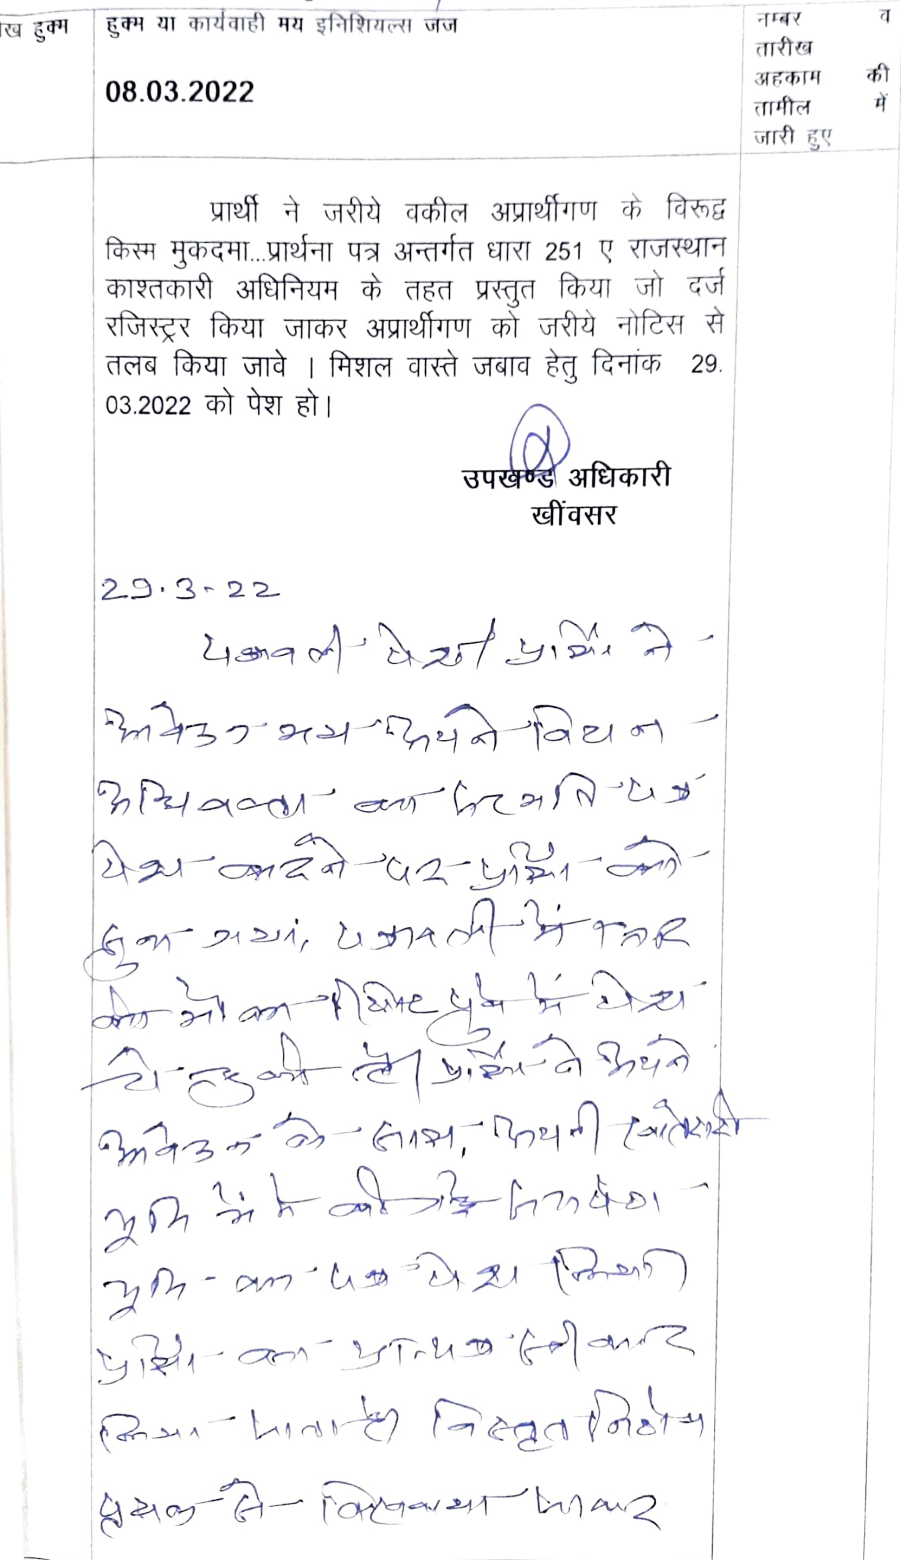 ख हुक्म
हुक्म या कार्यवाही मय इनिशियल्स जज
08.03.2022
नम्बर व
तारीख
अहकाम की
तामील में
जारी हुए
प्रार्थी ने जरीये वकील अप्रार्थीगण के विरूद्व
किस्म मुकदमा...प्रार्थना पत्र अन्तर्गत धारा 251 ए राजस्थान
काश्तकारी अधिनियम के तहत प्रस्तुत किया जो दर्ज
रजिस्ट्रर किया जाकर अप्रार्थीगण को जरीये नोटिस से
तलब किया जावे । मिशल वास्ते जबाव हेतु दिनांक 29.
03.2022 को पेश हो।
उपखण्ड अधिकारी
खींवसर
29.3-22
पत्रावली पेश। प्रार्थी ने
आवेदन मय अपने विद्वान
अधिवक्ता का सहमति पत्र
पेश करने पर प्रार्थी को
सुना गया, पत्रावली में
की मौका रिपोर्ट पूर्व में पेश
हो चुकी है। प्रार्थी ने अपने
आवेदन के साथ, अपनी खातेदारी
भूमि में से की गई
भूमि का पत्र पेश किया।
प्रार्थी का प्रा०पत्र स्वीकार
किया जाता है। विस्तृत निर्णय
पृथक से लिखवाया जाकर